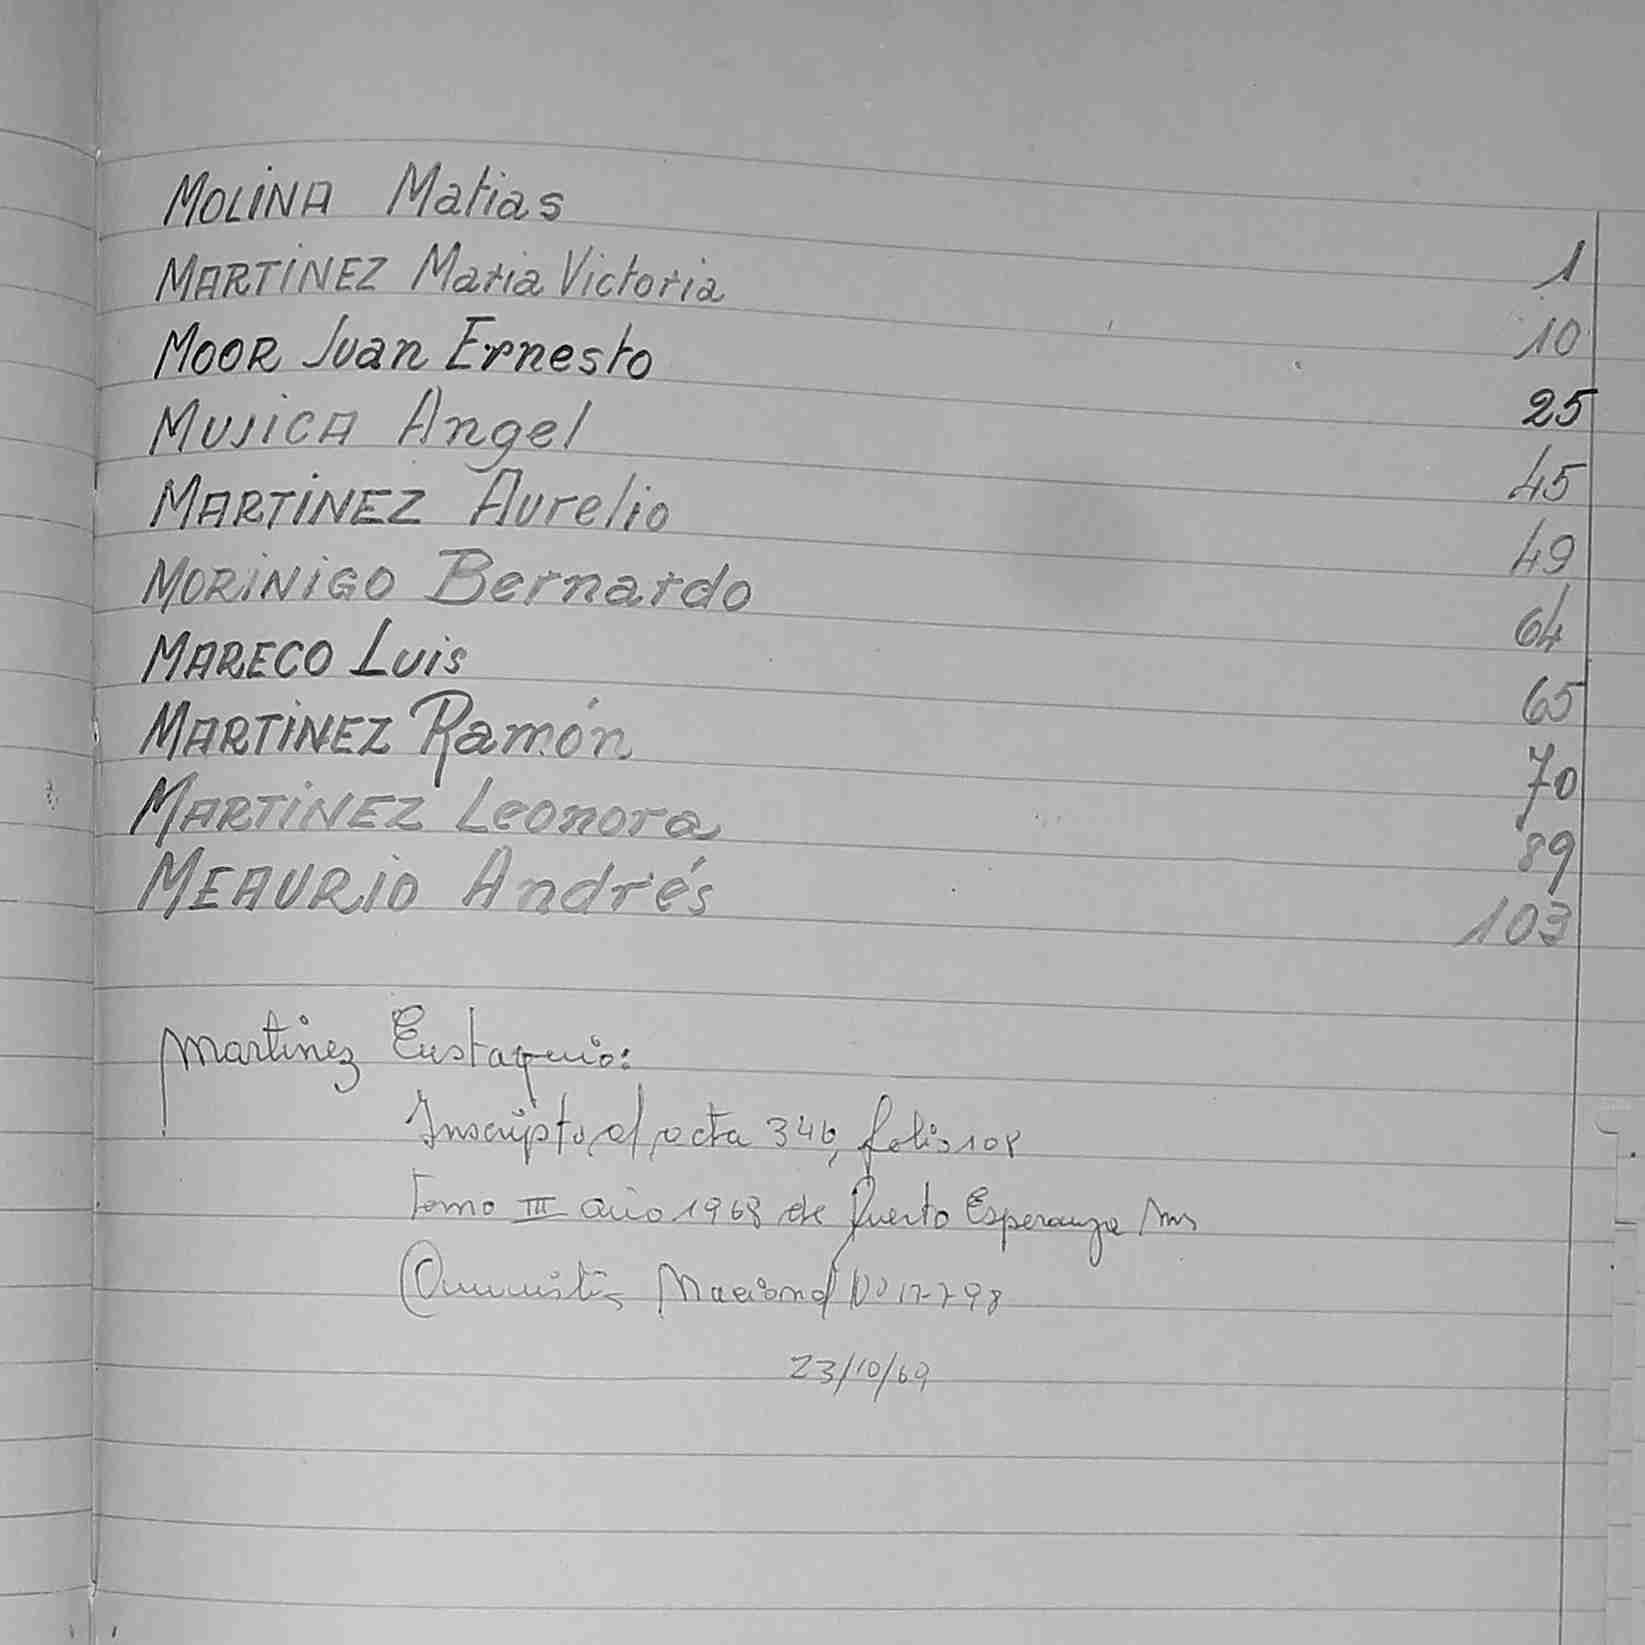 MOLINA Matias 1
MARTINEZ Maria Victoria 10
MOOR Juan Ernesto 25
MUJICA Angel 45
MARTINEZ Aurelio 49
MORINIGO Bernardo 64
MARECO Luis 65
MARTINEZ Ramón 70
MARTINEZ Leonora 89
MEAURIO Andrés 103
Martinez Eustaquio:
Inscripto acta 346, folio 108
Tomo III año 1968 de Puerto Esperanza Mns
Nacional Nº
23/10/69